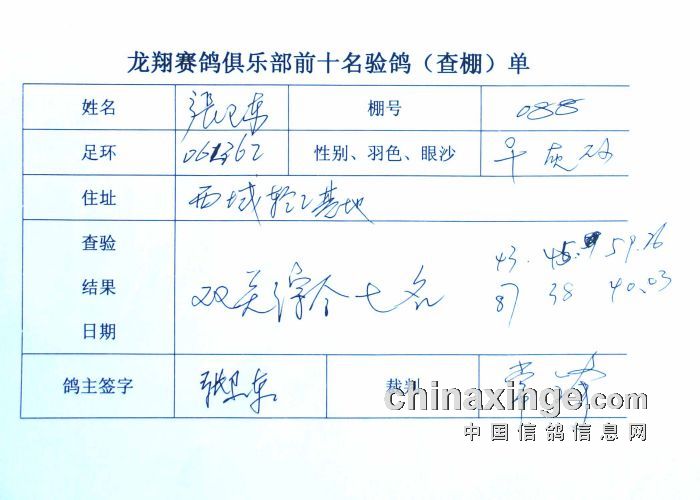 龙翔赛鸽俱乐部前十名验鸽（查棚）单
姓名 張卫东 棚号 088
足环 061362 性别、羽色、眼沙 灰
住址 西域轻工基地
查验
结果
日期
双关综合七名
43. 59.76
87 38 40.03
鸽主签字 张卫东 裁判
chinaxinge.com
中国信鸽信息网